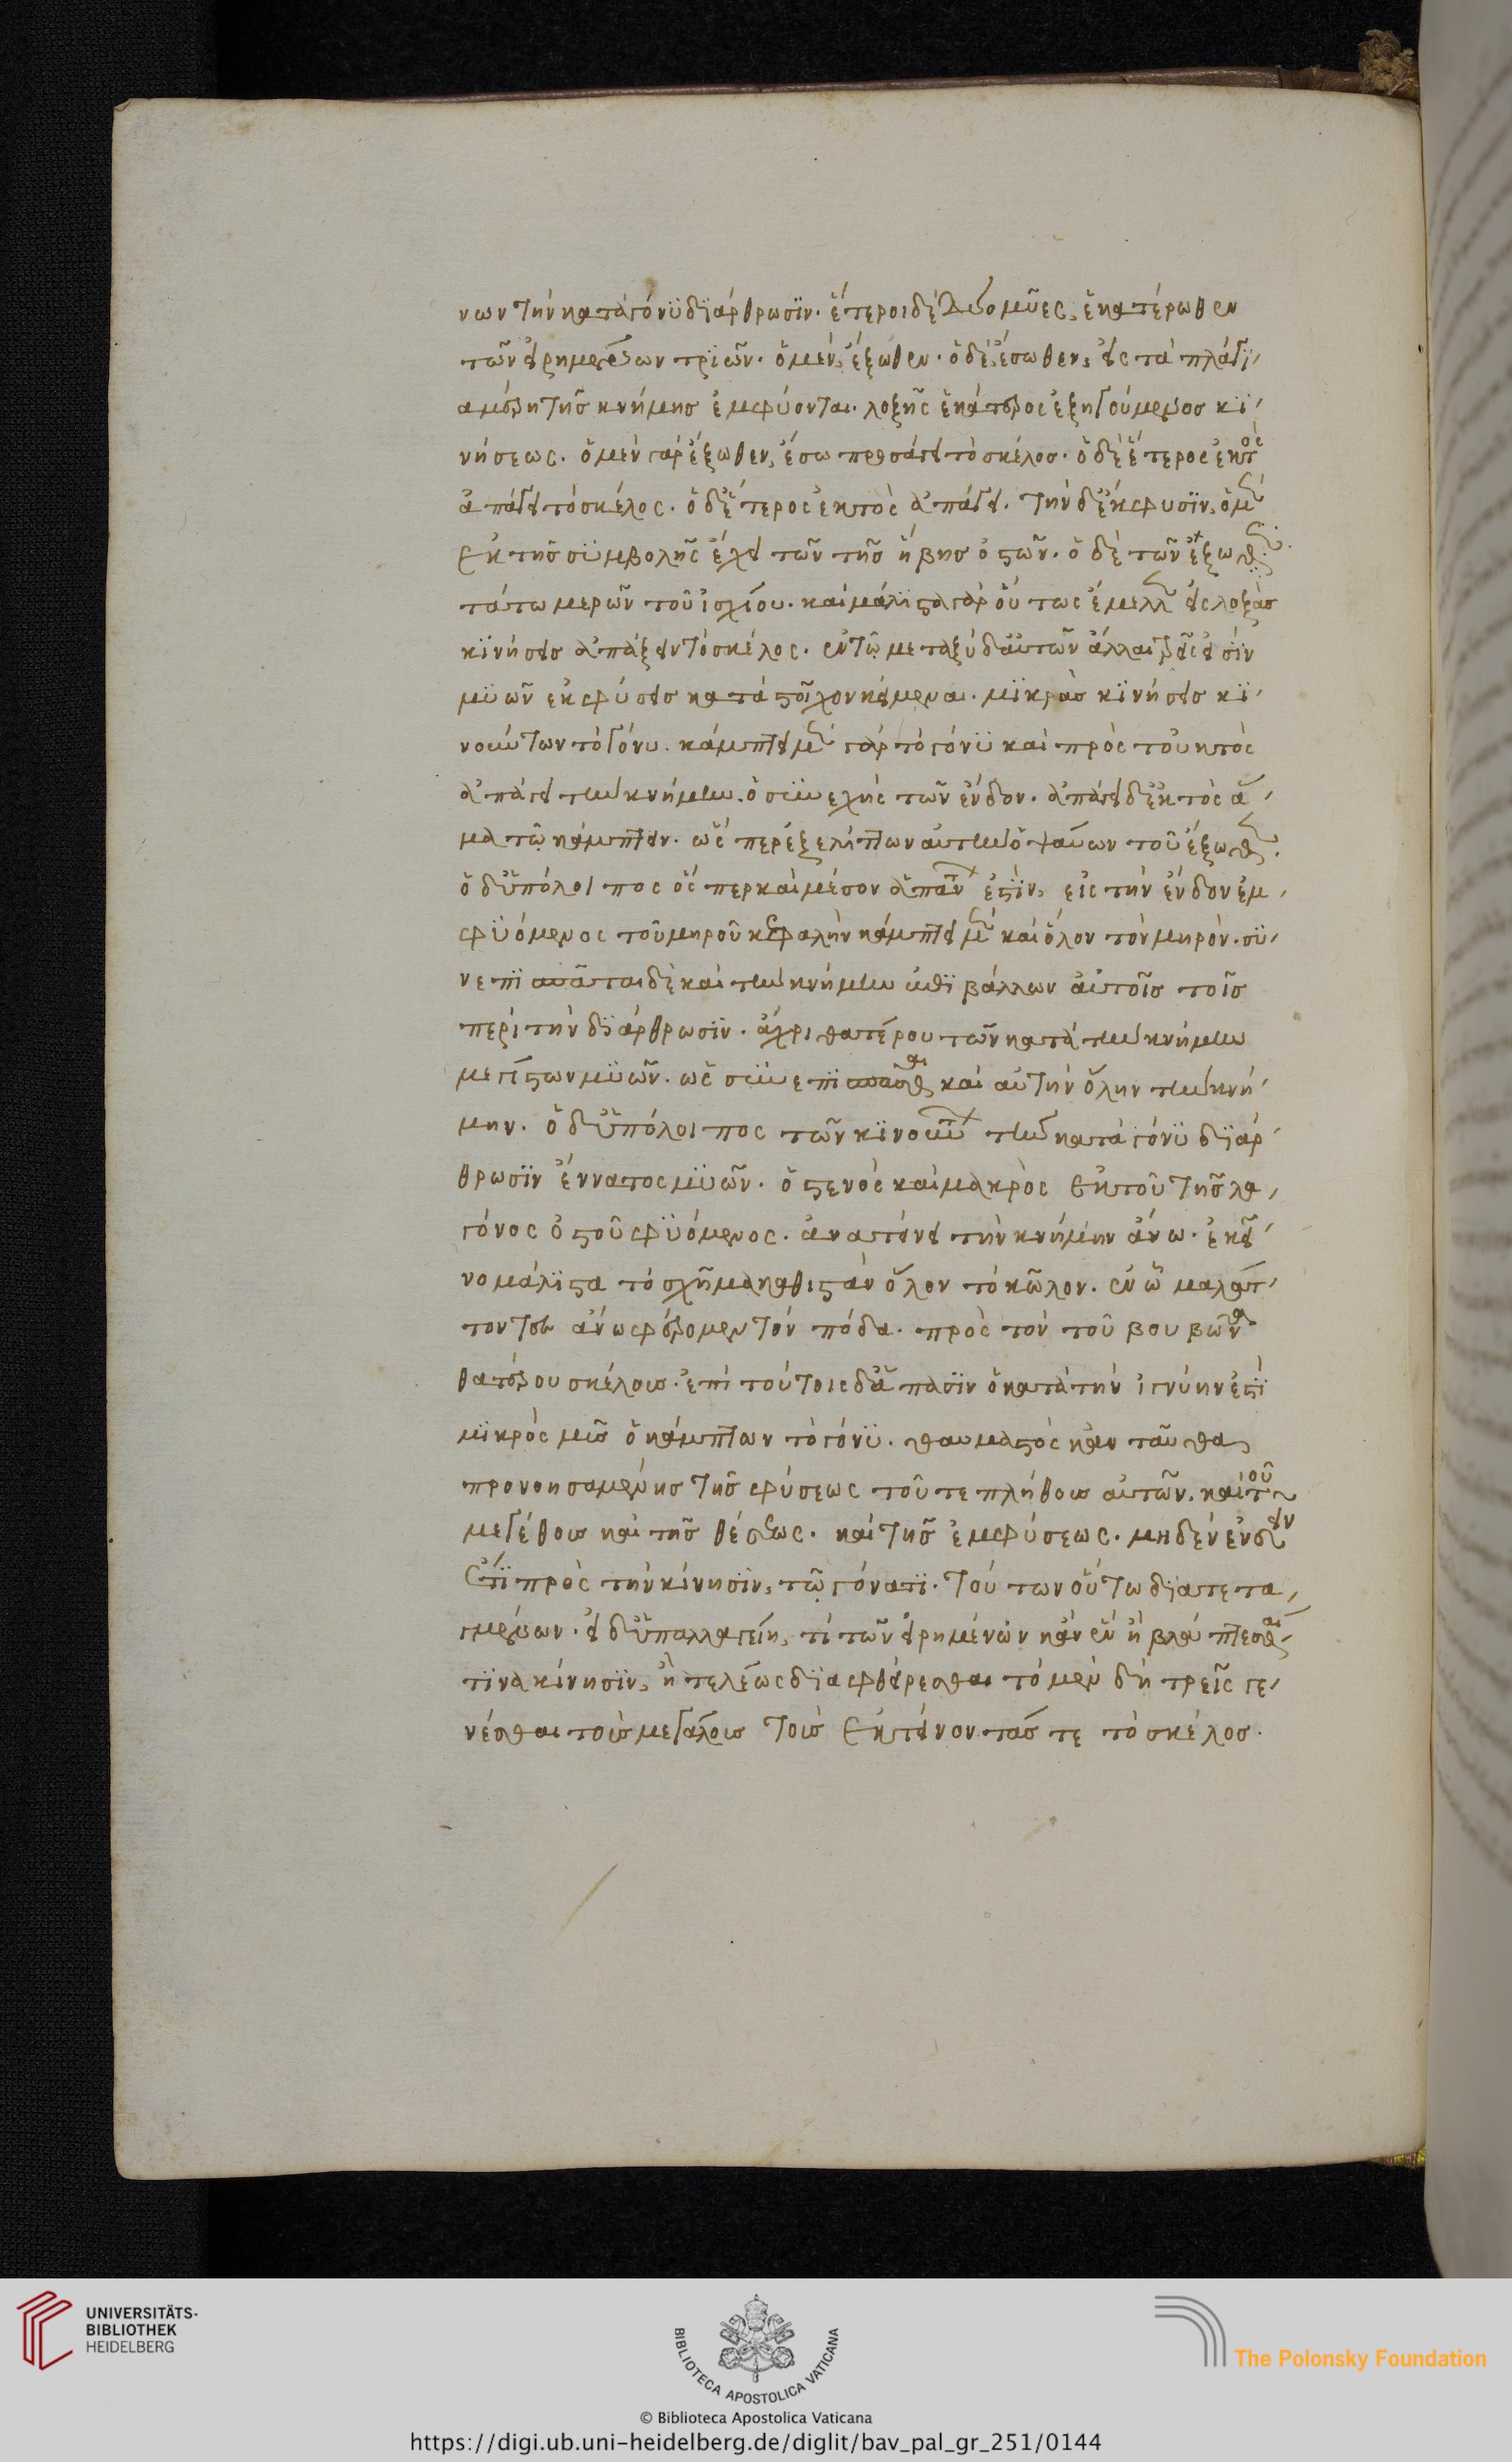 νων τὴν κατὰ γόνυ διάρθρωσιν. ἕτεροι δὲ δύο μῦες, ἑκατέρωθεν
τῶν εἰρημένων τριῶν. ὁ μὲν, ἔξωθεν. ὁ δὲ, ἔσωθεν, εἰς τὰ πλάγι
α μέρη τῆς κνήμης ἐμφύονται. λοξῆς ἑκάτερος ἐξηγούμενος κι
νήσεως. ὁ μὲν γὰρ ἔξωθεν, ἔσω προσάγει τὸ σκέλος. ὁ δὲ ἕτερος ἐκτὸς
ἀπάγει τὸ σκέλος. ὁ δ' ἕτερος ἐκτὸς ἀπάγει. τὴν δ' ἔκφυσιν, ὁ μὲν
ἐκ τῆς συμβολῆς ἔχει τῶν τῆς ἥβης ὀστῶν. ὁ δὲ τῶν ἔξωθεν
τάτω μερῶν τοῦ ἰσχίου. καὶ μάλιστα γὰρ οὕτως ἔμελλεν εἰς λοξὰς
κινήσεις ἀπάξειν τὸ σκέλος. ἐν τῷ μεταξὺ δ' αὐτῶν ἄλλαι τρεῖς εἰσὶν
μυῶν ἐκφύσεις κατὰ στοῖχον κείμεναι. μικρὰς κινήσεις κι
νούντων τὸ γόνυ. κάμπτει μὲν γὰρ τὸ γόνυ καὶ πρὸς τοὐκτὸς
ἀπάγει τὴν κνήμην. ὁ συνεχὴς τῶν ἔνδον. ἀπάγει δ' ἐκτὸς ἅ
μα τῷ κάμπτειν. ὥσπερ ἐξελίττων αὐτὴν ὁ ψαύων τοῦ ἔξωθεν.
ὁ δ' ὑπόλοιπος ὅσπερ καὶ μέσον ἁπάντων ἐστὶν, εἰς τὴν ἔνδον ἐμ
φυόμενος τοῦ μηροῦ κεφαλὴν κάμπτει μὲν καὶ ὅλον τὸν μηρόν. συ
νεπισπᾶται δὲ καὶ τὴν κνήμην ἐπιβάλλων αὐτοῖς τοῖς
περὶ τὴν διάρθρωσιν. ἄχρι θατέρου τῶν κατὰ τὴν κνήμην
μεγίστων μυῶν. ὡς συνεπισπᾶσθαι καὶ αὐτὴν ὅλην τὴν κνή
μην. ὁ δ' ὑπόλοιπος τῶν κινούντων τὴν κατὰ γόνυ διάρ
θρωσιν ἔννατος μυῶν. ὁ στενὸς καὶ μακρὸς ἐκ τοῦ τῆς λα
γόνος ὀστοῦ φυόμενος. ἀνατείνει τὴν κνήμην ἄνω. ἐκεῖ
νο μάλιστα τὸ σχῆμα καθιστὰν ὅλον τὸ κῶλον. ἐν ᾧ μαλάτ
τοντες ἄνω φέρομεν τὸν πόδα. πρὸς τὸν τοῦ βουβῶνα
θατέρου σκέλους. ἐπὶ τούτοις δ' ἅπασιν ὁ κατὰ τὴν ἰγνύην ἐστὶ
μικρὸς μῦς ὁ κάμπτων τὸ γόνυ. θαυμαστὸς κἀνταῦθα
προνοησαμένης τῆς φύσεως τοῦ τε πλήθους αὐτῶν. καὶ τοῦ
μεγέθους καὶ τῆς θέσεως. καὶ τῆς ἐμφύσεως. μηδὲν ἐνδεῖν
ἔτι πρὸς τὴν κίνησιν, τῷ γόνατι. τούτων οὕτω διατετα
γμένων. εἰ δ' ὑπαλλαγείη, τί τῶν εἰρημένων κἂν ἓν ἢ βλάπτεσθαι
τινὰ κίνησιν, ἢ τελέως διαφθείρεσθαι τὸ μὲν δὴ τρεῖς γε
νέσθαι τοὺς μεγάλους τοὺς ἐκτείνοντάς τε τὸ σκέλος.
UNIVERSITÄTS-
BIBLIOTHEK
HEIDELBERG
BIBLIOTECA APOSTOLICA VATICANA
The Polonsky Foundation
© Biblioteca Apostolica Vaticana
https://digi.ub.uni-heidelberg.de/diglit/bav_pal_gr_251/0144